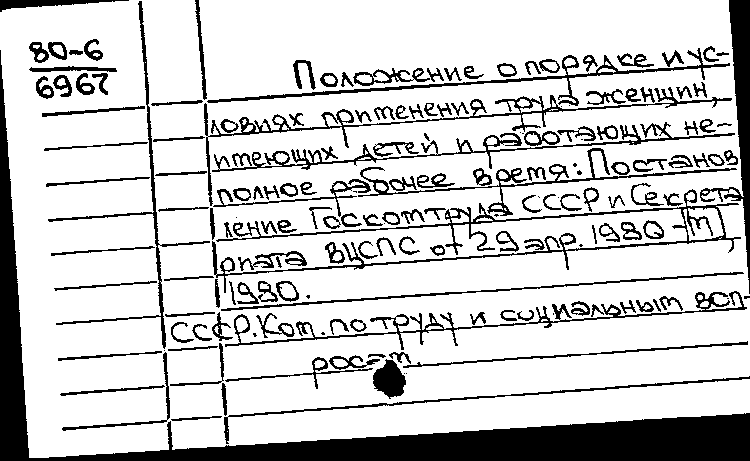 80-6
6967
Положение о порядке и ус-
ловиях применения труда женщин,
имеющих детей и работающих не-
полное рабочее время: Постанов
ление Госкомтруда СССР и Секрета
риата ВЦСПС от 29 апр. 1980 -[М],
1980.
СССР. Ком. по труду и социальным воп-
росам.